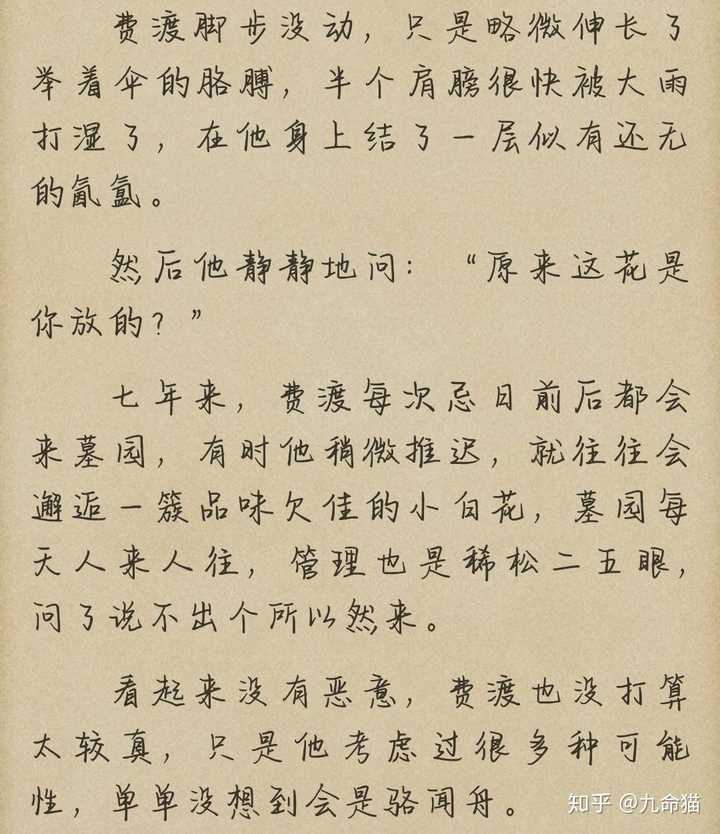 费渡脚步没动，只是略微伸长了
举着伞的胳膊，半个肩膀很快被大雨
打湿了，在他身上结了一层似有还无
的氤氲。
然后他静静地问：“原来这花是
你放的？”
七年来，费渡每次忌日前后都会
来墓园，有时他稍微推迟，就往往会
邂逅一簇品味欠佳的小白花，墓园每
天人来人往，管理也是稀松二五眼，
问了说不出个所以然来。
看起来没有恶意，费渡也没打算
太较真，只是他考虑过很多种可能
性，单单没想到会是骆闻舟。
知乎 @九命猫